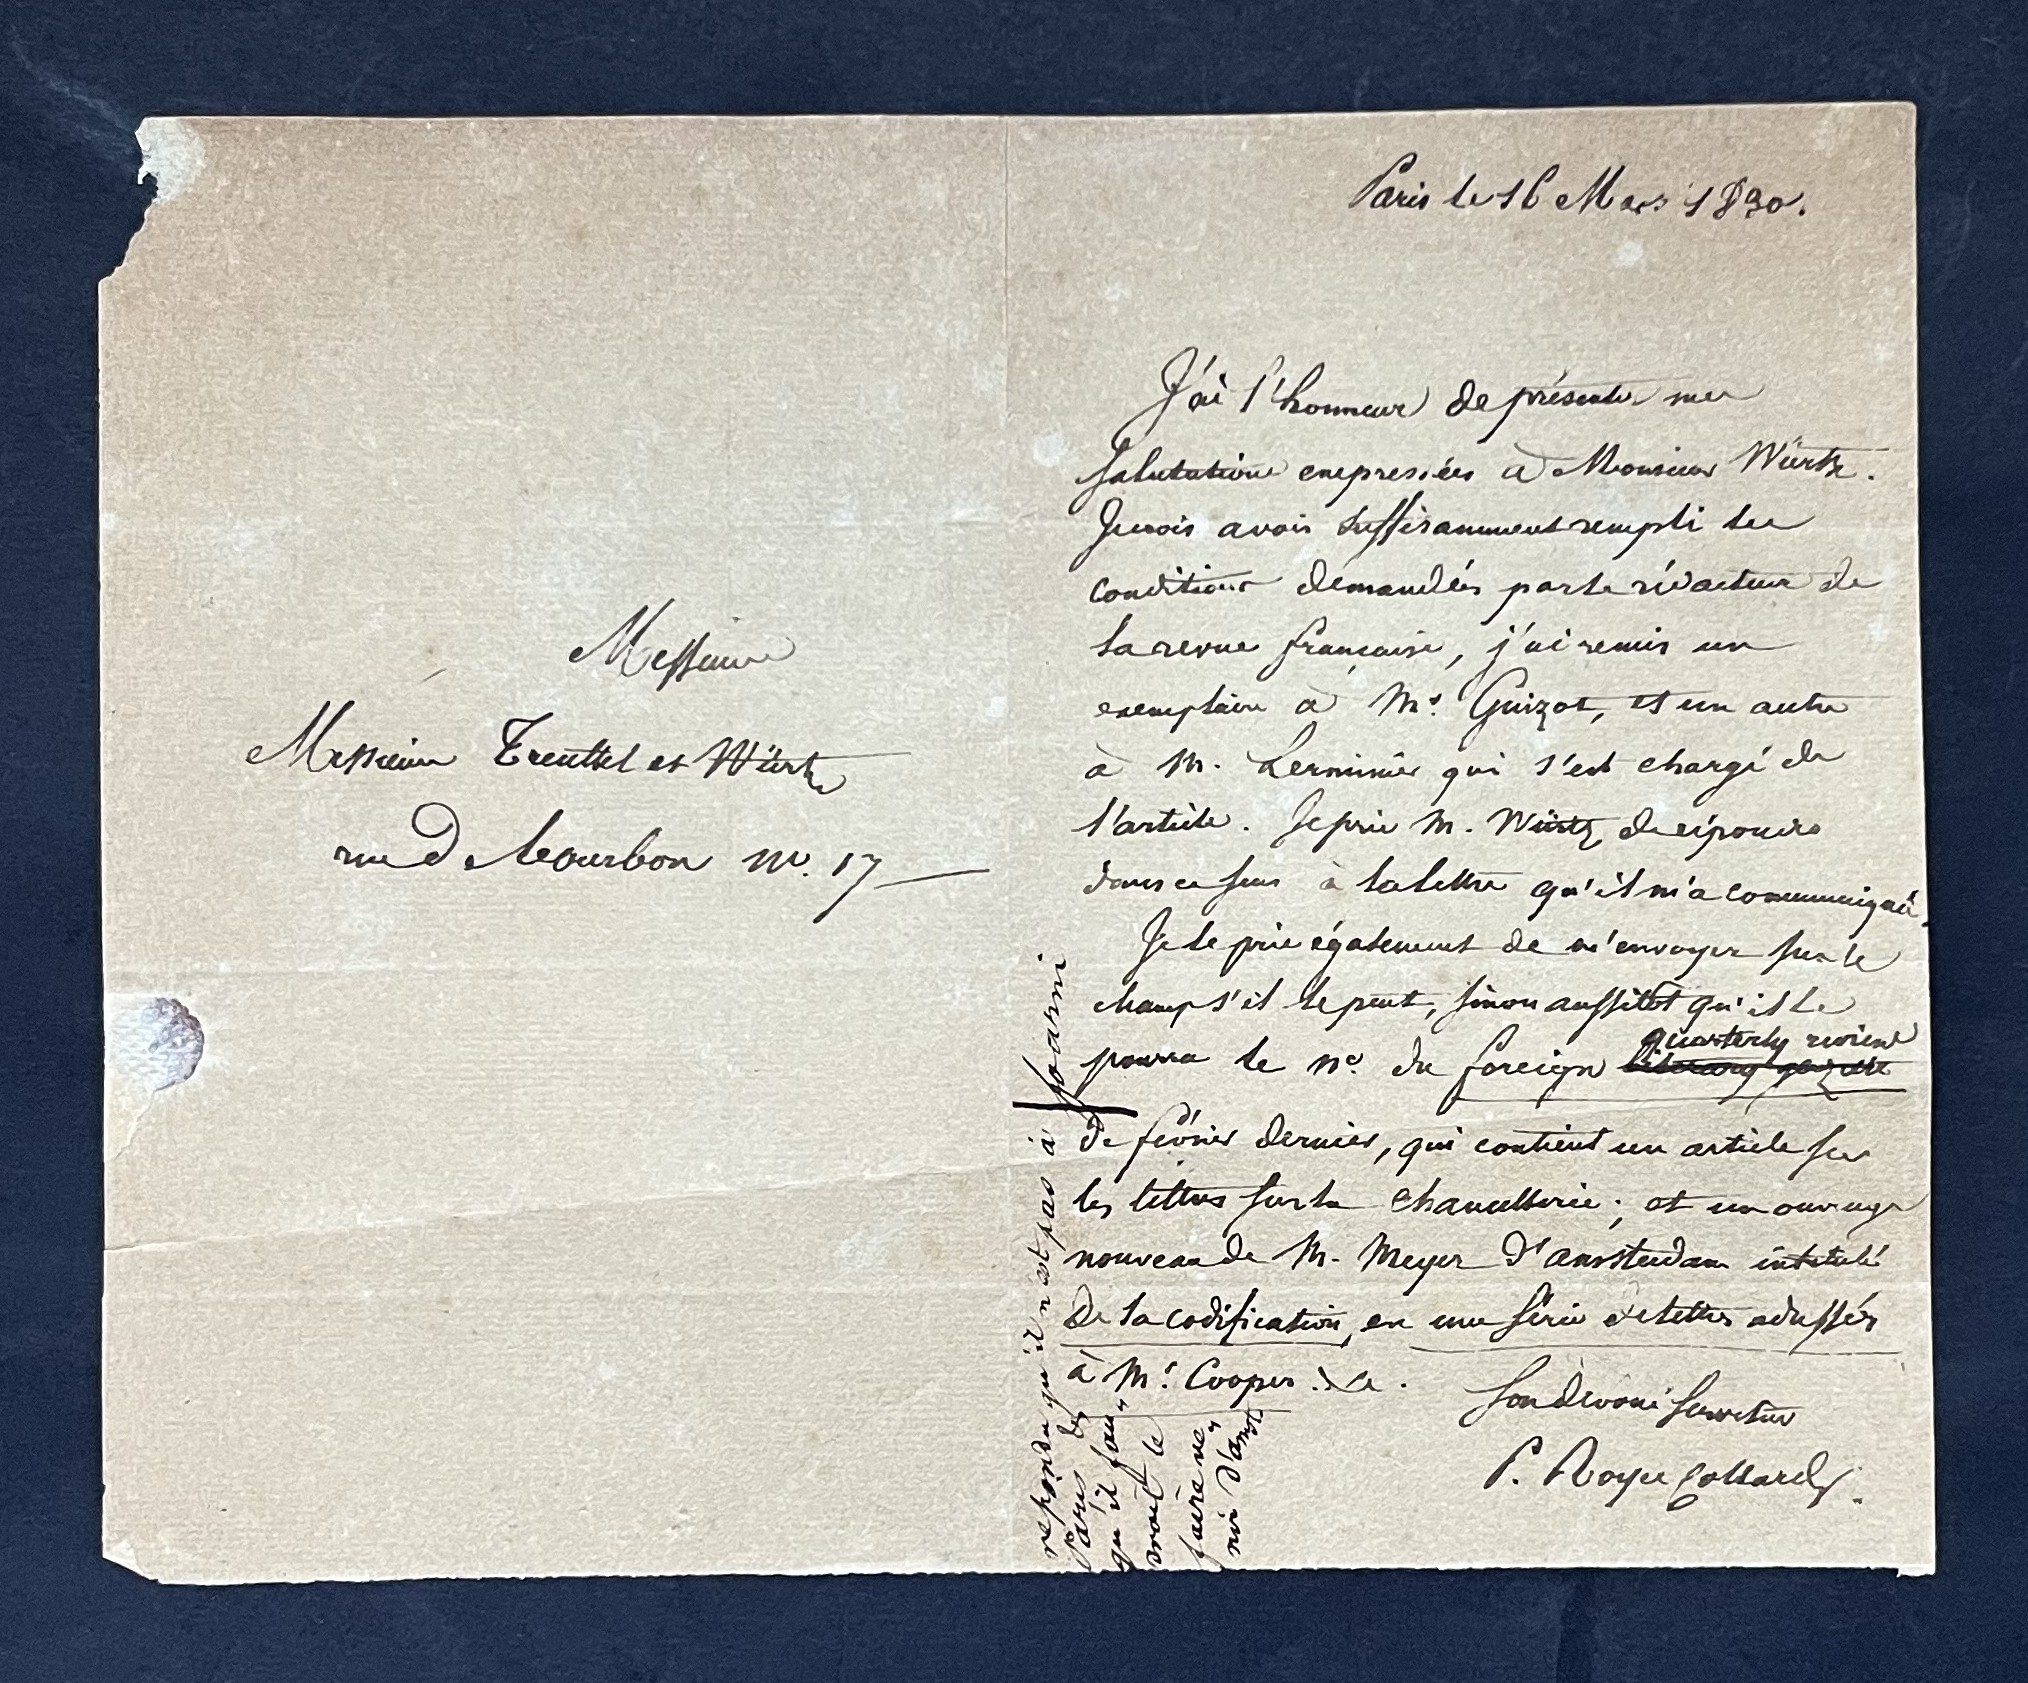 Messieurs
Messieurs Treuttel et Würtz
rue de Bourbon no. 17
Paris le 16 Mars 1830.
J'ai l'honneur de présenter mes
salutations empressées à Monsieur Würtz.
Je crois avoir suffisamment rempli les
conditions demandées par le rédacteur de
la revue française, j'ai remis un
exemplaire à Mr. Guizot, et un autre
à M. Lerminier qui s'est chargé de
l'article. Je prie M. Würtz de répondre
dans ce sens à la lettre qu'il m'a communiquée.
Je le prie également de m'envoyer sur le
champ s'il le peut, sinon aussitôt qu'il le
quarterly review
pourra le no. du foreign literary gazette
de février dernier, qui contient un article sur
les lettres sur la chancellerie; et un ouvrage
nouveau de M. Meyer d'amsterdam intitulé
De la codification, en une série de lettres adressées
à Mr. Cooper &c.
Son dévoué serviteur
P. Royer Collard.
fourni
répondu qu'il n'est pas à
Paris &
qu'il fau„
drait le
faire ve„
nir d'amst